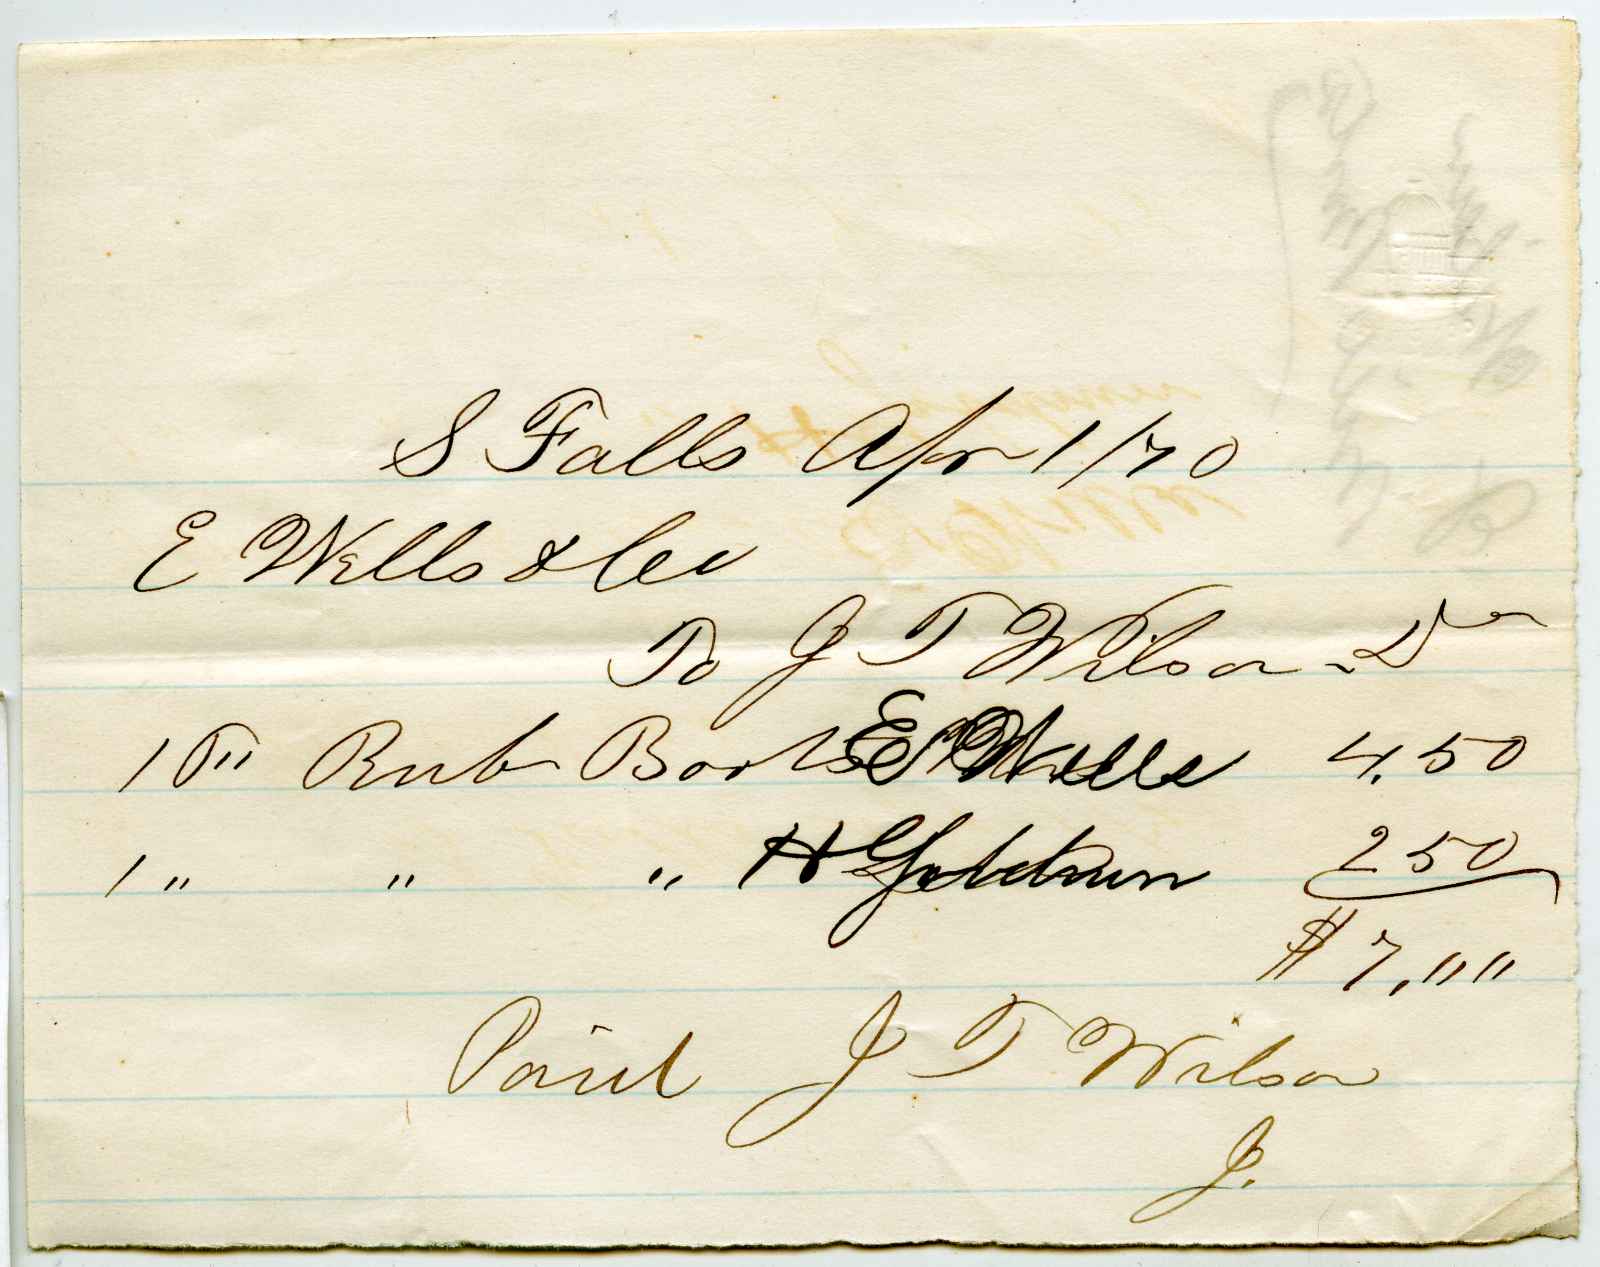 S Falls Apr 1/70
E Wells & Co
To J T Wilson Dr
1 Pr Rub Boots E Wells 4.50
1 " " " H 2 50
$7,""
Paid J T Wilson
J.